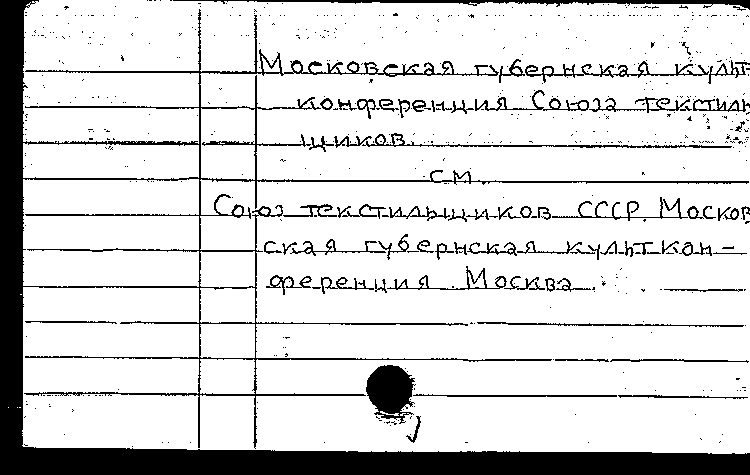 Московская губернская культ
конференция Союза текстиль
щиков.
см.
Союз текстильщиков СССР. Москов
ская губернская культкон-
ференция. Москва.